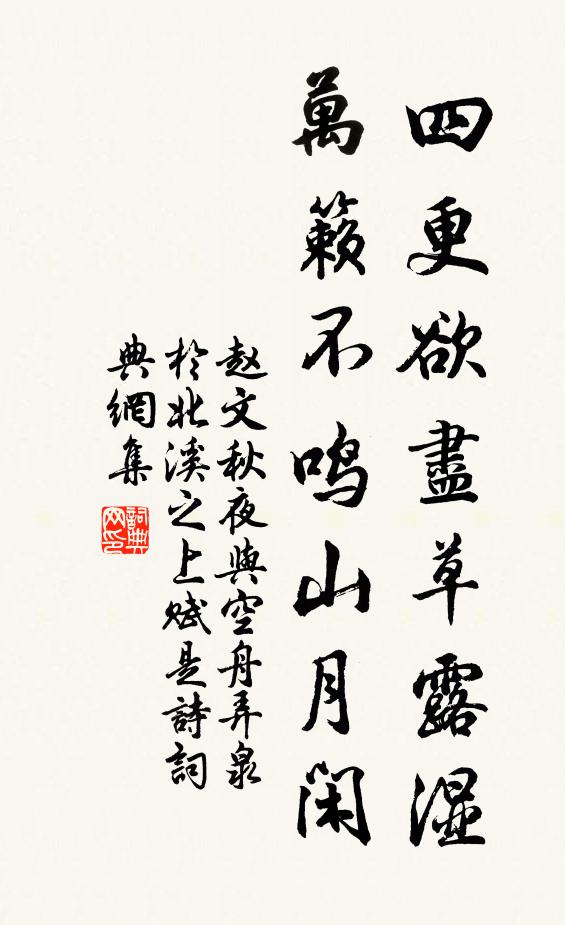 四更欲盡草露湿
萬籟不鸣山月闲
赵文秋夜與空舟弄泉
於北溪之上赋是詩詞
典網集
詞典
网印